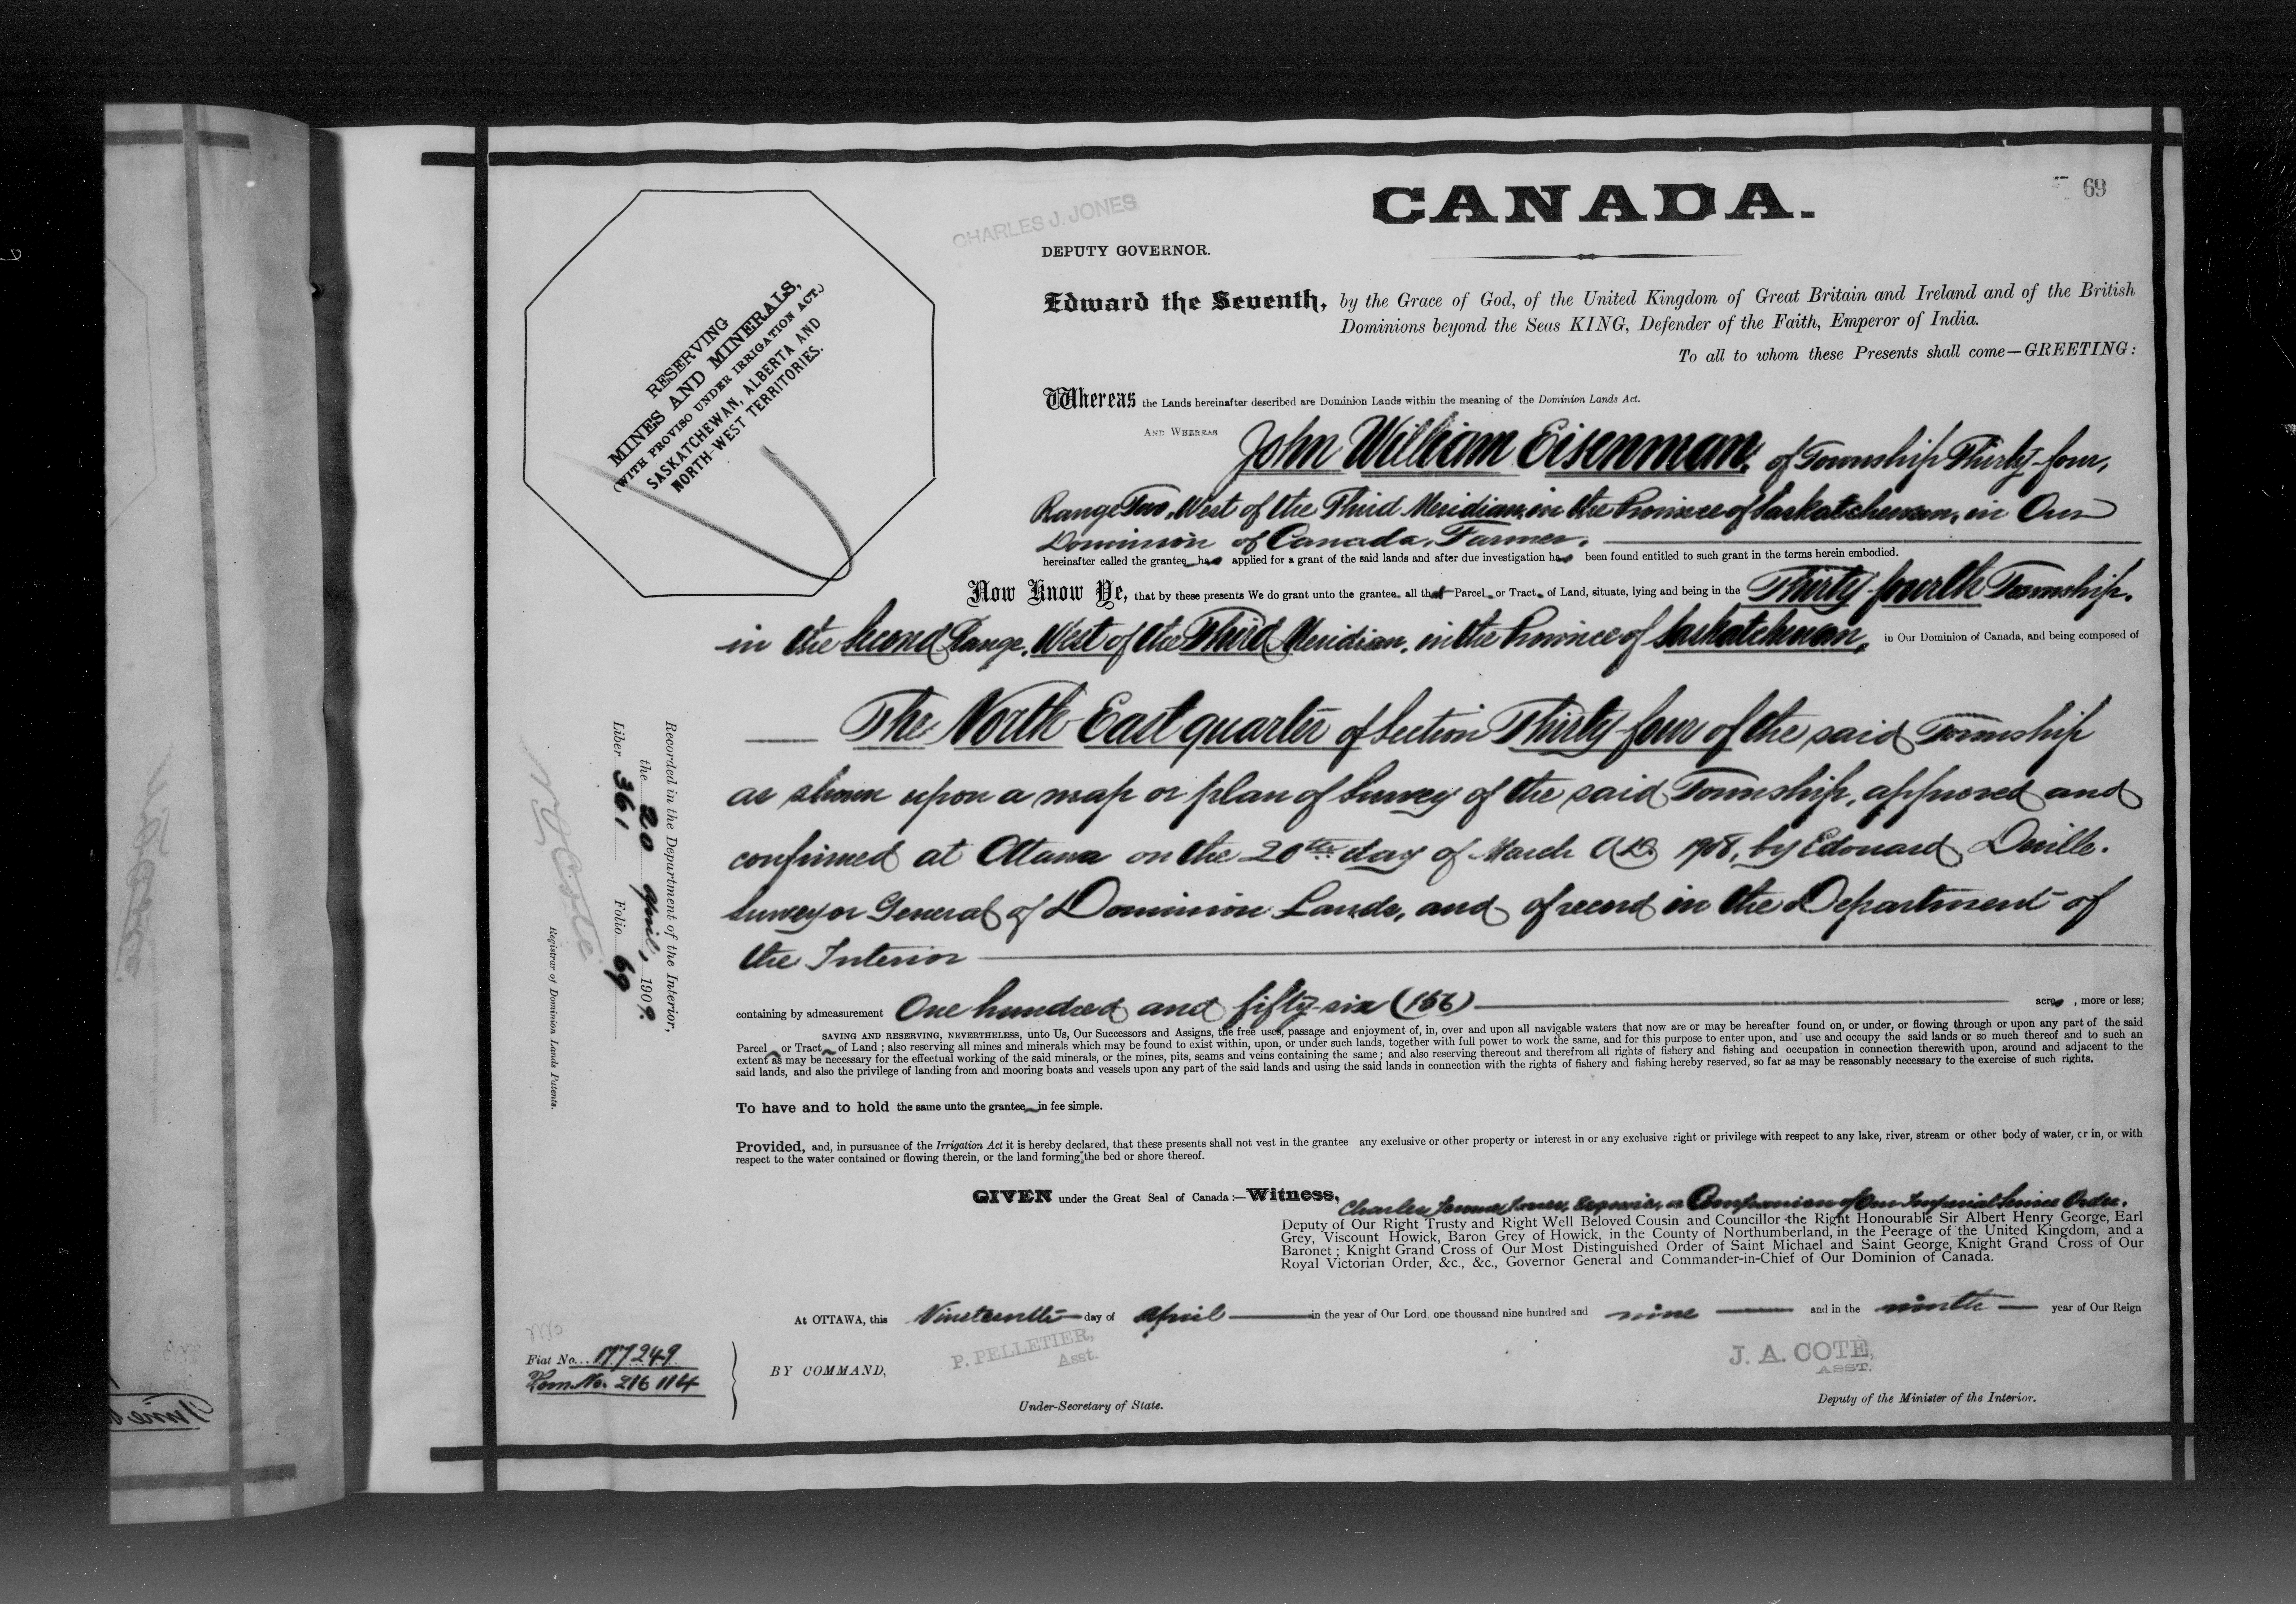 69
CANADA.
CHARLES J. JONES
DEPUTY GOVERNOR.
RESERVING
MINES AND MINERALS,
(WITH PROVISO UNDER IRRIGATION ACT.)
SASKATCHEWAN, ALBERTA AND
NORTH-WEST TERRITORIES.
Edward the Seventh, by the Grace of God, of the United Kingdom of Great Britain and Ireland and of the British
Dominions beyond the Seas KING, Defender of the Faith, Emperor of India.
To all to whom these Presents shall come—GREETING:
Whereas the Lands hereinafter described are Dominion Lands within the meaning of the Dominion Lands Act.
AND WHEREAS John William Eisenman, of Township Thirty-four,
Range Two, West of the Third Meridian, in the Province of Saskatchewan, in Our
Dominion of Canada, Farmer,
hereinafter called the grantee has applied for a grant of the said lands and after due investigation has been found entitled to such grant in the terms herein embodied.
Now Know Ye, that by these presents We do grant unto the grantee, all that Parcel or Tract of Land, situate, lying and being in the Thirty-fourth Township,
in the Second Range, West of the Third Meridian, in the Province of Saskatchewan, in Our Dominion of Canada, and being composed of
The North East quarter of Section Thirty-four of the said Township
as shown upon a map or plan of Survey of the said Township, approved and
confirmed at Ottawa on the 20th day of March A.D. 1908, by Edouard Deville.
Surveyor General of Dominion Lands, and of record in the Department of
the Interior
containing by admeasurement One hundred and fifty-six (156) acres, more or less;
SAVING AND RESERVING, NEVERTHELESS, unto Us, Our Successors and Assigns, the free uses, passage and enjoyment of, in, over and upon all navigable waters that now are or may be hereafter found on, or under, or flowing through or upon any part of the said
Parcel or Tract of Land; also reserving all mines and minerals which may be found to exist within, upon, or under such lands, together with full power to work the same, and for this purpose to enter upon, and use and occupy the said lands or so much thereof and to such an
extent as may be necessary for the effectual working of the said minerals, or the mines, pits, seams and veins containing the same; and also reserving thereout and therefrom all rights of fishery and fishing and occupation in connection therewith upon, around and adjacent to the
said lands, and also the privilege of landing from and mooring boats and vessels upon any part of the said lands and using the said lands in connection with the rights of fishery and fishing hereby reserved, so far as may be reasonably necessary to the exercise of such rights.
To have and to hold the same unto the grantee in fee simple.
Provided, and, in pursuance of the Irrigation Act it is hereby declared, that these presents shall not vest in the grantee any exclusive or other property or interest in or any exclusive right or privilege with respect to any lake, river, stream or other body of water, or in, or with
respect to the water contained or flowing therein, or the land forming the bed or shore thereof.
GIVEN under the Great Seal of Canada:—Witness, Charles Jones, Esquire, a Companion of Our Imperial Service Order,
Deputy of Our Right Trusty and Right Well Beloved Cousin and Councillor the Right Honourable Sir Albert Henry George, Earl
Grey, Viscount Howick, Baron Grey of Howick, in the County of Northumberland, in the Peerage of the United Kingdom, and a
Baronet; Knight Grand Cross of Our Most Distinguished Order of Saint Michael and Saint George, Knight Grand Cross of Our
Royal Victorian Order, &c., &c., Governor General and Commander-in-Chief of Our Dominion of Canada.
At OTTAWA, this Nineteenth day of April in the year of Our Lord one thousand nine hundred and nine and in the ninth year of Our Reign
BY COMMAND,
P. PELLETIER,
Asst.
Under-Secretary of State.
J. A. COTE,
ASST.
Deputy of the Minister of the Interior.
Fiat No. 177249
Hom. No. 216114
Recorded in the Department of the Interior,
the 20 April, 1909.
Liber 361 Folio 69
Registrar of Dominion Lands Patents.